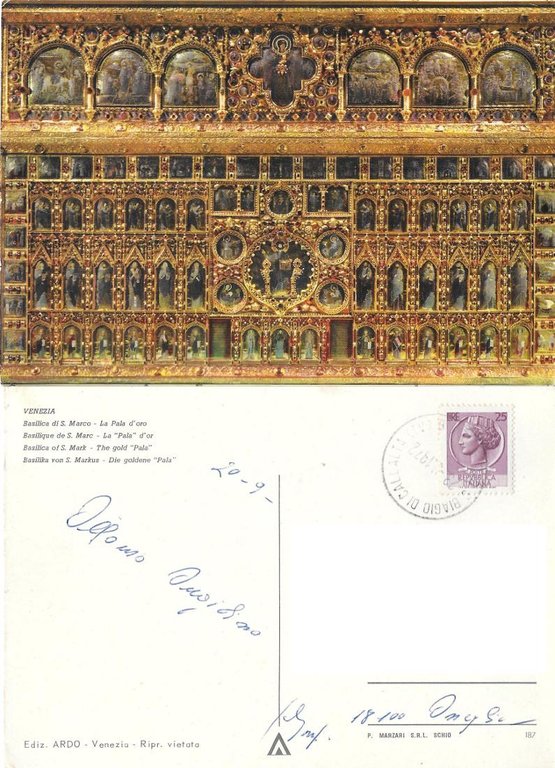 VENEZIA
Basilica di S. Marco - La Pala d'oro
Basilique de S. Marc - La "Pala" d'or
Basilica of S. Mark - The gold "Pala"
Basilika von S. Markus - Die goldene "Pala"
20-9-
LIRE 25
REPVBBLICA
ITALIANA
S. BIAGIO DI CALLALTA
18100
Ediz. ARDO - Venezia - Ripr. vietata
P. MANZARI S.R.L. SCHIO
187